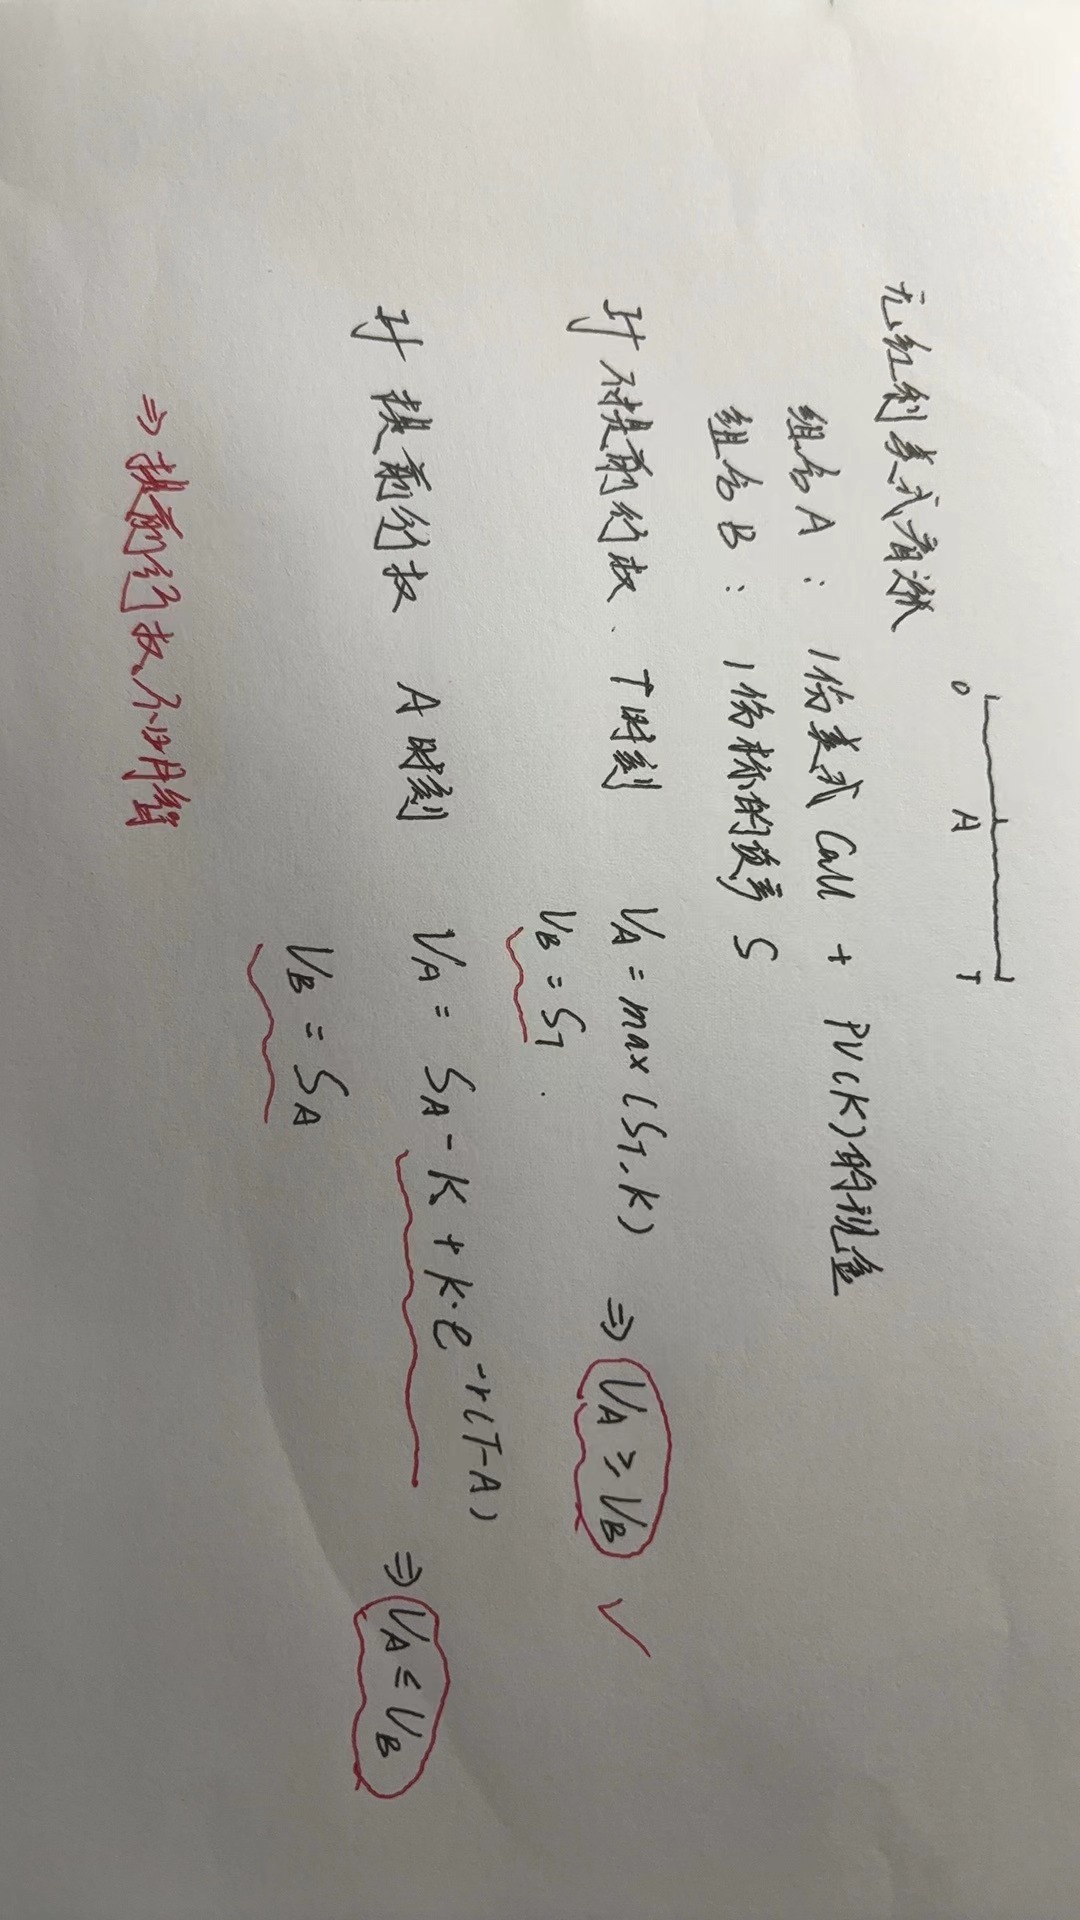 O A T
无红利美式看涨
组合A: 1份美式Call + PV(K)的现金
组合B: 1份标的资产 S
对不提前行权. T时刻 V_A = max(S_T, K) ⇒ V_A ≥ V_B ✓
V_B = S_T.
对提前行权 A时刻 V_A = S_A - K + K·e^{-r(T-A)} ⇒ V_A ≤ V_B
V_B = S_A
⇒ 提前行权不明智